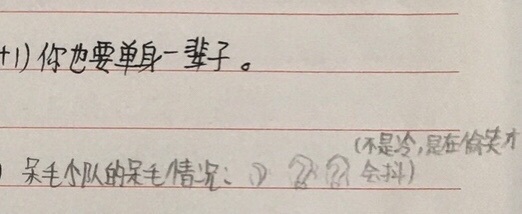 +1) 你也要单身一辈子。
(不是冷,是在偷笑才
) 呆毛小队的呆毛情况: 会抖)